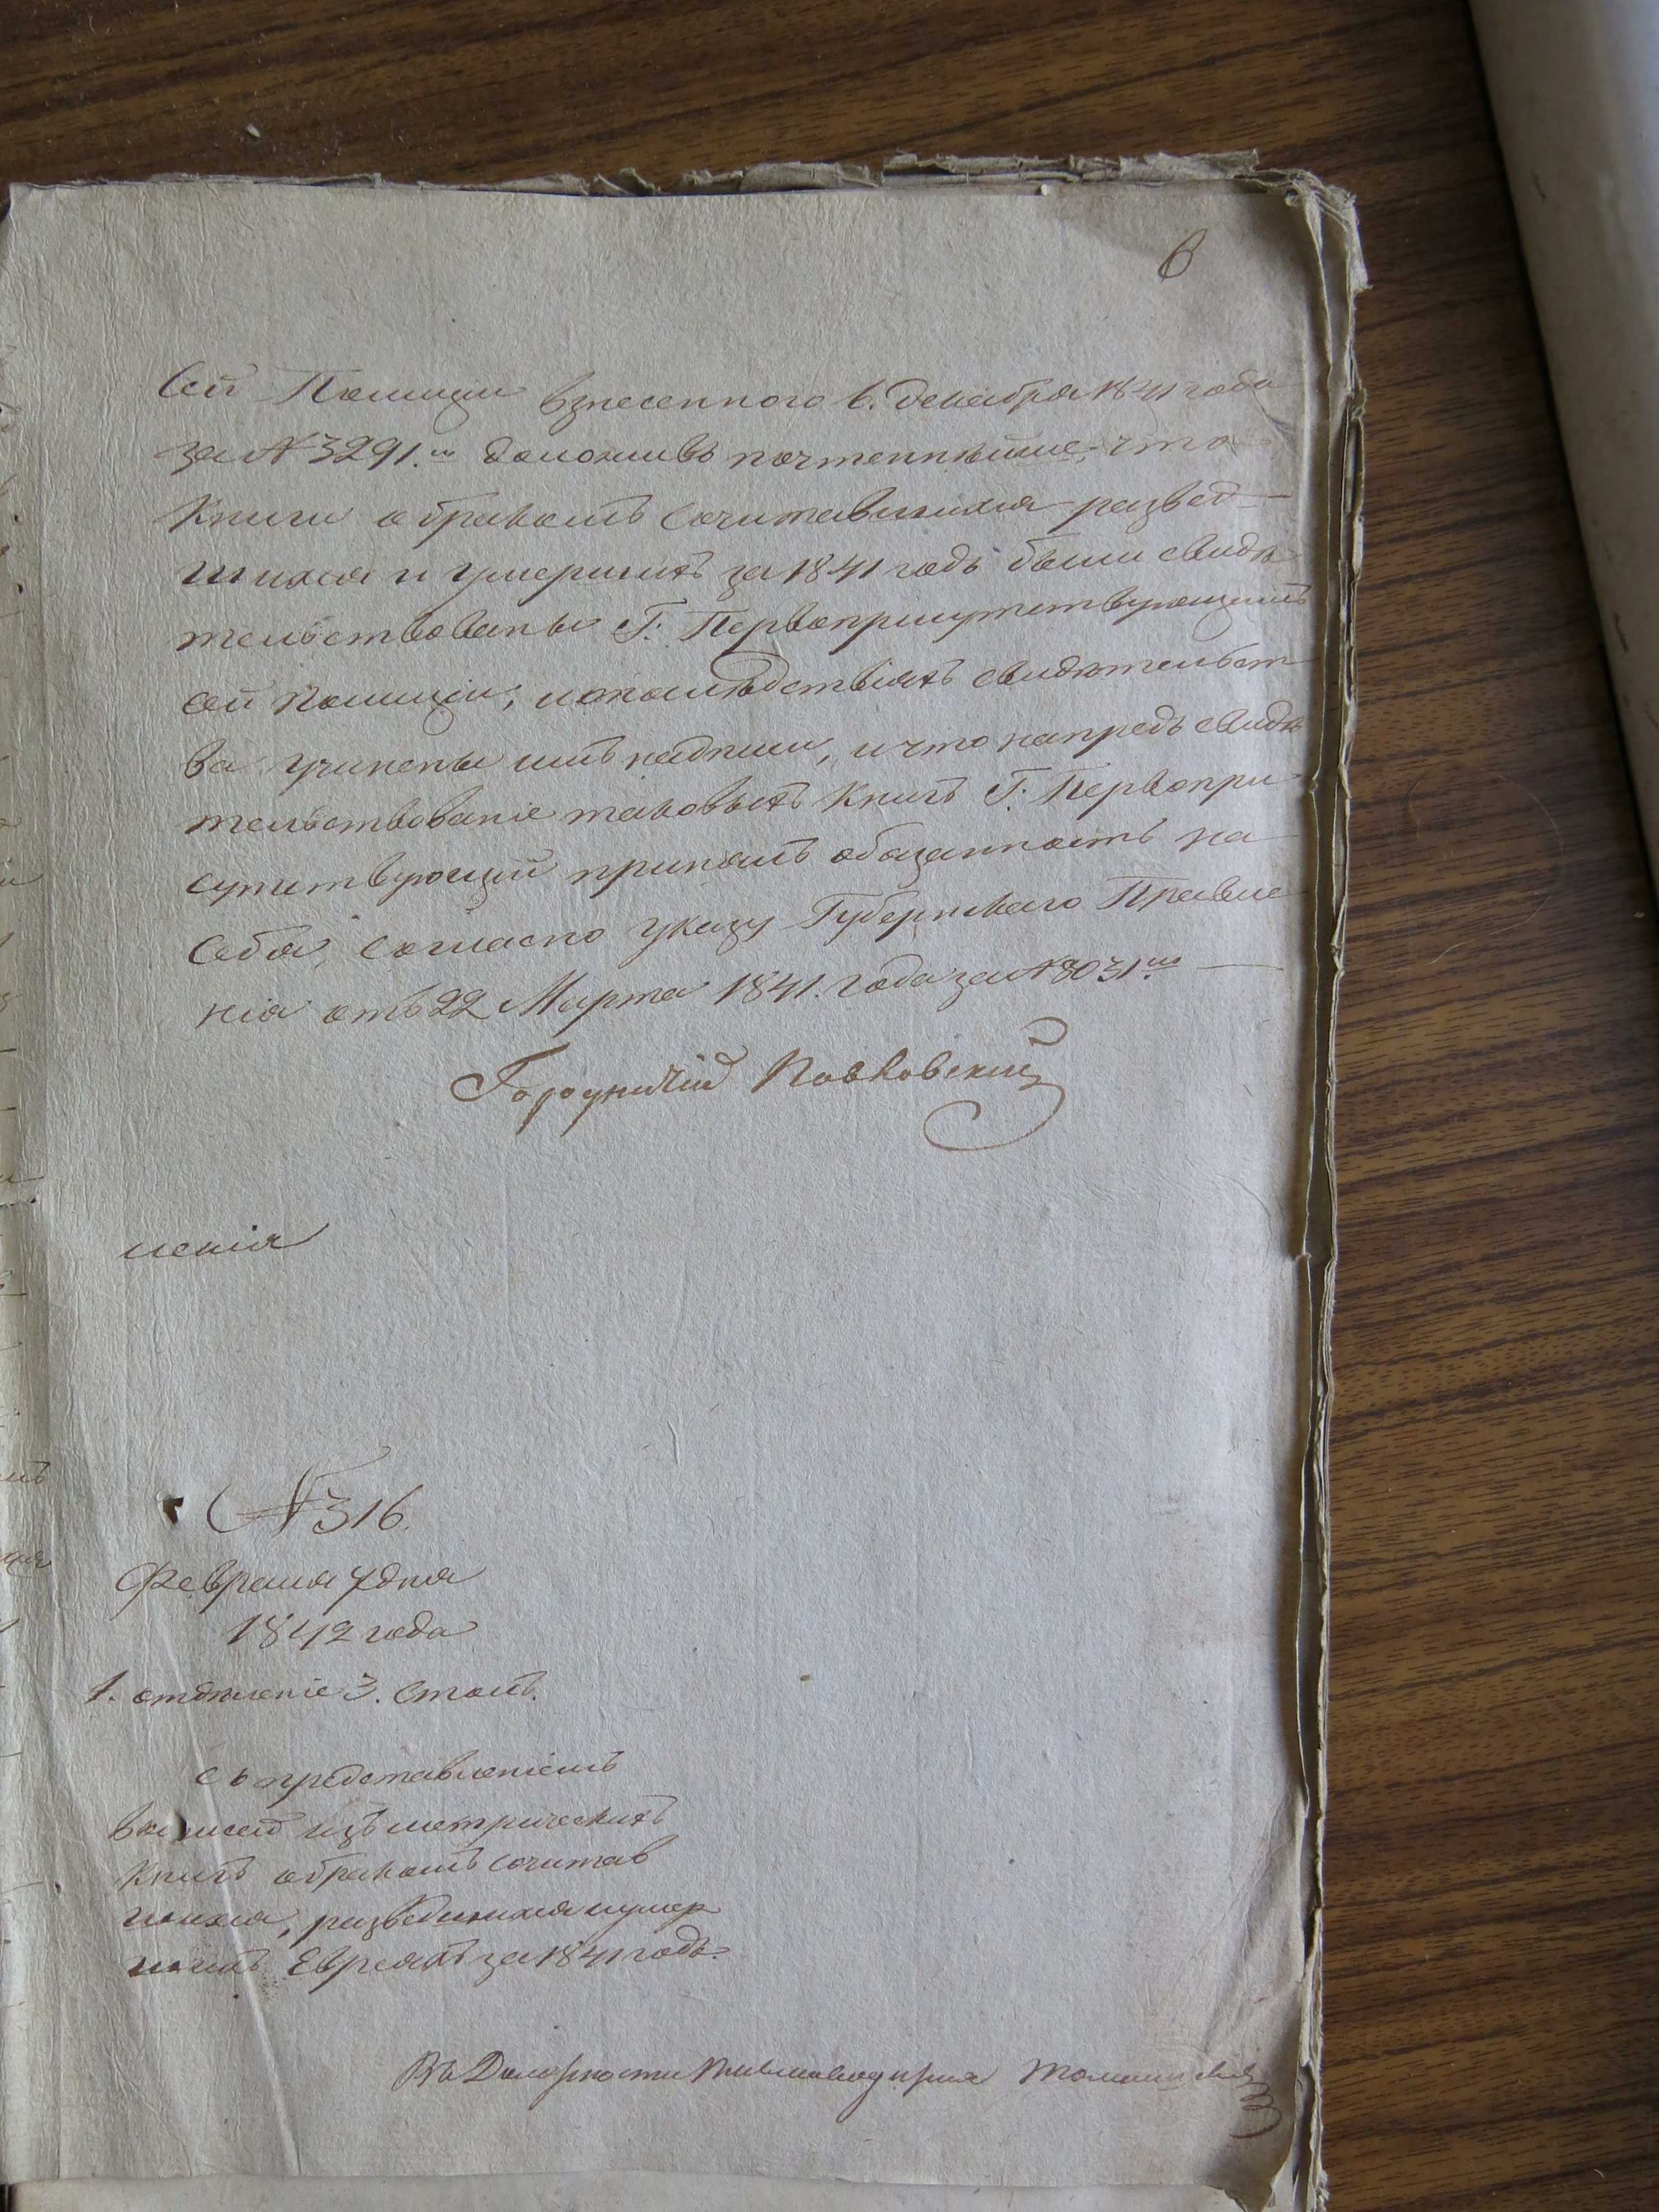 6
Сей Полиции взнесенного 6. декабря 1841 года
за № 3291.м доложивъ почтеннѣйше, что
Книги о бракомъ сочитавшихся развед-
шихся и умершихъ за 1841 годъ были свидѣ
тельствованы Г: Первоприсутствующимъ
сей полиціи, и о послѣдствіяхъ свидѣтельст
ва учинены имъ надписи, и что напредъ свидѣ
тельствованіе таковыхъ Книгъ Г: Первопри
сутствующій принялъ обязанность на
Себя, согласно указу Губернскаго Правле
нія отъ 22 Марта 1841. года за № 8031.м
Городничій
№ 316.
Февраля 7 дня
1842 года
1. отдѣленіе 3. столъ.
съ представленіемъ
выписей изъ метрическихъ
Книгъ о бракомъ сочитав
шихся, разведшихся и умер
шихъ Евреяхъ за 1841 годъ.
Въ Должности Письмоводителя